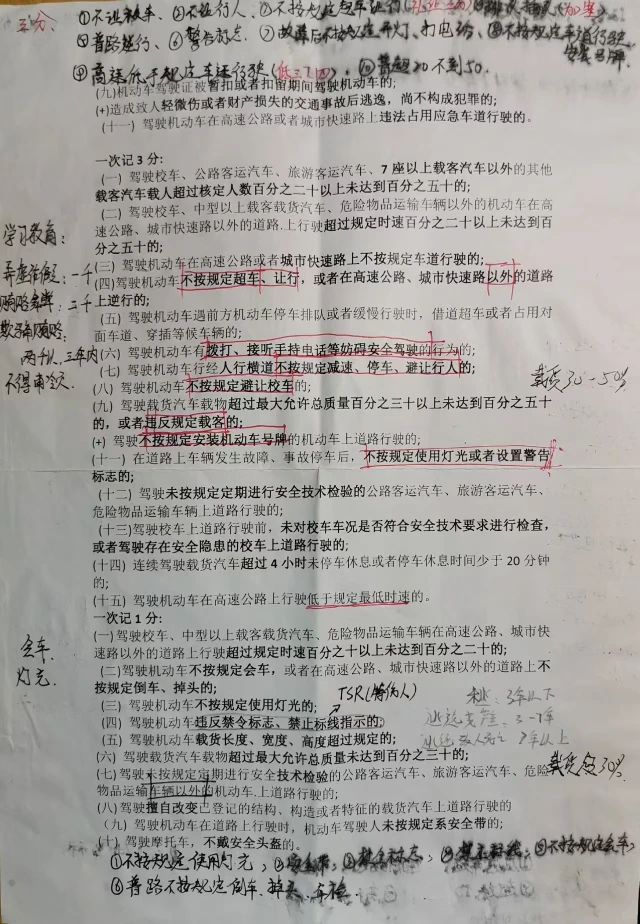 三分、①不让校车、②不让行人、③不按规定超车让行
⑤普路逆行、⑥警告标志、⑦故障后不按规定开灯、⑧不按规定车道行驶
⑨高速低于规定车速行驶(低于下限)、⑩普超20不到50.
(九)机动车驾驶证被暂扣或者扣留期间驾驶机动车的;
(十)造成致人轻微伤或者财产损失的交通事故后逃逸，尚不构成犯罪的;
(十一) 驾驶机动车在高速公路或者城市快速路上违法占用应急车道行驶的。
一次记3分:
(一) 驾驶校车、公路客运汽车、旅游客运汽车、7座以上载客汽车以外的其他
载客汽车载人超过核定人数百分之二十以上未达到百分之五十的;
(二) 驾驶校车、中型以上载客载货汽车、危险物品运输车辆以外的机动车在高
速公路、城市快速路以外的道路上行驶超过规定时速百分之二十以上未达到百
分之五十的;
学习教育:
(三) 驾驶机动车在高速公路或者城市快速路上不按规定车道行驶的;
弄虚作假: 一千
(四)驾驶机动车不按规定超车、让行，或者在高速公路、城市快速路以外的道路
二千
上逆行的;
(五) 驾驶机动车遇前方机动车停车排队或者缓慢行驶时，借道超车或者占用对
面车道、穿插等候车辆的;
三年内
(六) 驾驶机动车有拨打、接听手持电话等妨碍安全驾驶的行为的;
(七) 驾驶机动车行经人行横道不按规定减速、停车、避让行人的;
不得再次
(八) 驾驶机动车不按规定避让校车的;
载货30-50%
(九) 驾驶载货汽车载物超过最大允许总质量百分之三十以上未达到百分之五十
的，或者违反规定载客的;
(十) 驾驶不按规定安装机动车号牌的机动车上道路行驶的;
(十一) 在道路上车辆发生故障、事故停车后，不按规定使用灯光或者设置警告
标志的;
(十二) 驾驶未按规定定期进行安全技术检验的公路客运汽车、旅游客运汽车、
危险物品运输车辆上道路行驶的;
(十三)驾驶校车上道路行驶前，未对校车车况是否符合安全技术要求进行检查，
或者驾驶存在安全隐患的校车上道路行驶的;
(十四) 连续驾驶载货汽车超过4小时未停车休息或者停车休息时间少于20分钟
的;
(十五) 驾驶机动车在高速公路上行驶低于规定最低时速的。
一次记1分:
(一)驾驶校车、中型以上载客载货汽车、危险物品运输车辆在高速公路、城市快
速路以外的道路上行驶超过规定时速百分之十以上未达到百分之二十的;
会车
(二)驾驶机动车不按规定会车，或者在高速公路、城市快速路以外的道路上不
灯光
按规定倒车、掉头的;
(三) 驾驶机动车不按规定使用灯光的;
(四) 驾驶机动车违反禁令标志、禁止标线指示的;
3年以下
3-7年
(五) 驾驶机动车载货长度、宽度、高度超过规定的;
7年以上
(六) 驾驶载货汽车载物超过最大允许总质量未达到百分之三十的;
(七) 驾驶未按规定定期进行安全技术检验的公路客运汽车、旅游客运汽车、危险
30%
物品运输车辆以外的机动车上道路行驶的;
(八) 驾驶擅自改变已登记的结构、构造或者特征的载货汽车上道路行驶的
(九) 驾驶机动车在道路上行驶时，机动车驾驶人未按规定系安全带的;
(十) 驾驶摩托车，不戴安全头盔的。
①不按规定使用灯光;
⑥普路不按规定倒车、掉头